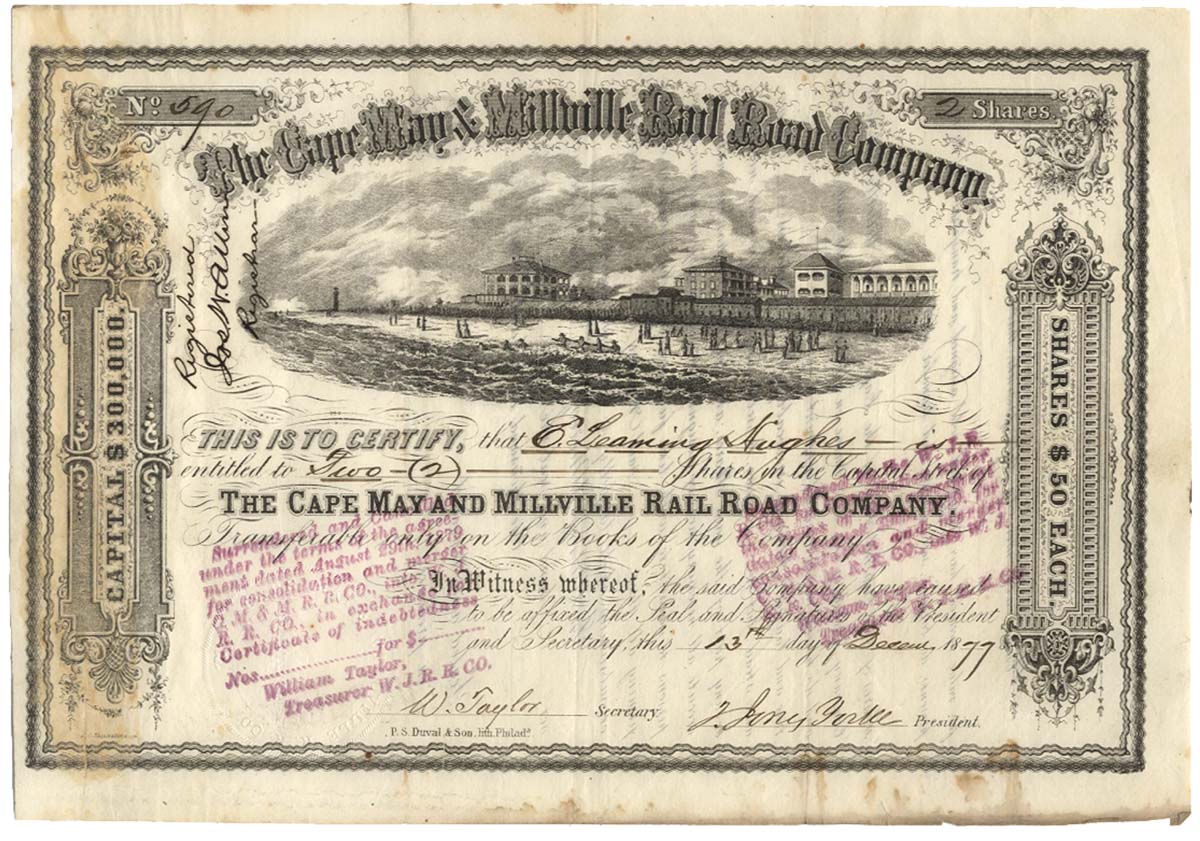 No. 590
2 Shares.
The Cape May & Millville Rail Road Company
Registered
Jos. W. Allin
Registrar
CAPITAL $300,000.
SHARES $50 EACH.
THIS IS TO CERTIFY, that E. Leaming Hughes — is —
entitled to Two (2) — Shares in the Capital Stock of
THE CAPE MAY AND MILLVILLE RAIL ROAD COMPANY.
Transferable only on the Books of the Company
In Witness whereof, the said Company have caused
to be affixed the Seal, and Signatures of the President
and Secretary, this 13th day of Decem, 1879
Surrendered and
under the terms of the agree-
ment dated August 29th, 1879
for consolidation and merger
C. M. & M. R. R. CO., into
R. R. CO., in exchange
Certificate of indebtedness
Nos. for $
William Taylor,
Treasurer W. J. R. R. CO.
W. J. R.
consolidation and merger
R. R. CO., into W. J.
W. Taylor Secretary.
President.
P. S. Duval & Son, lith. Philada.